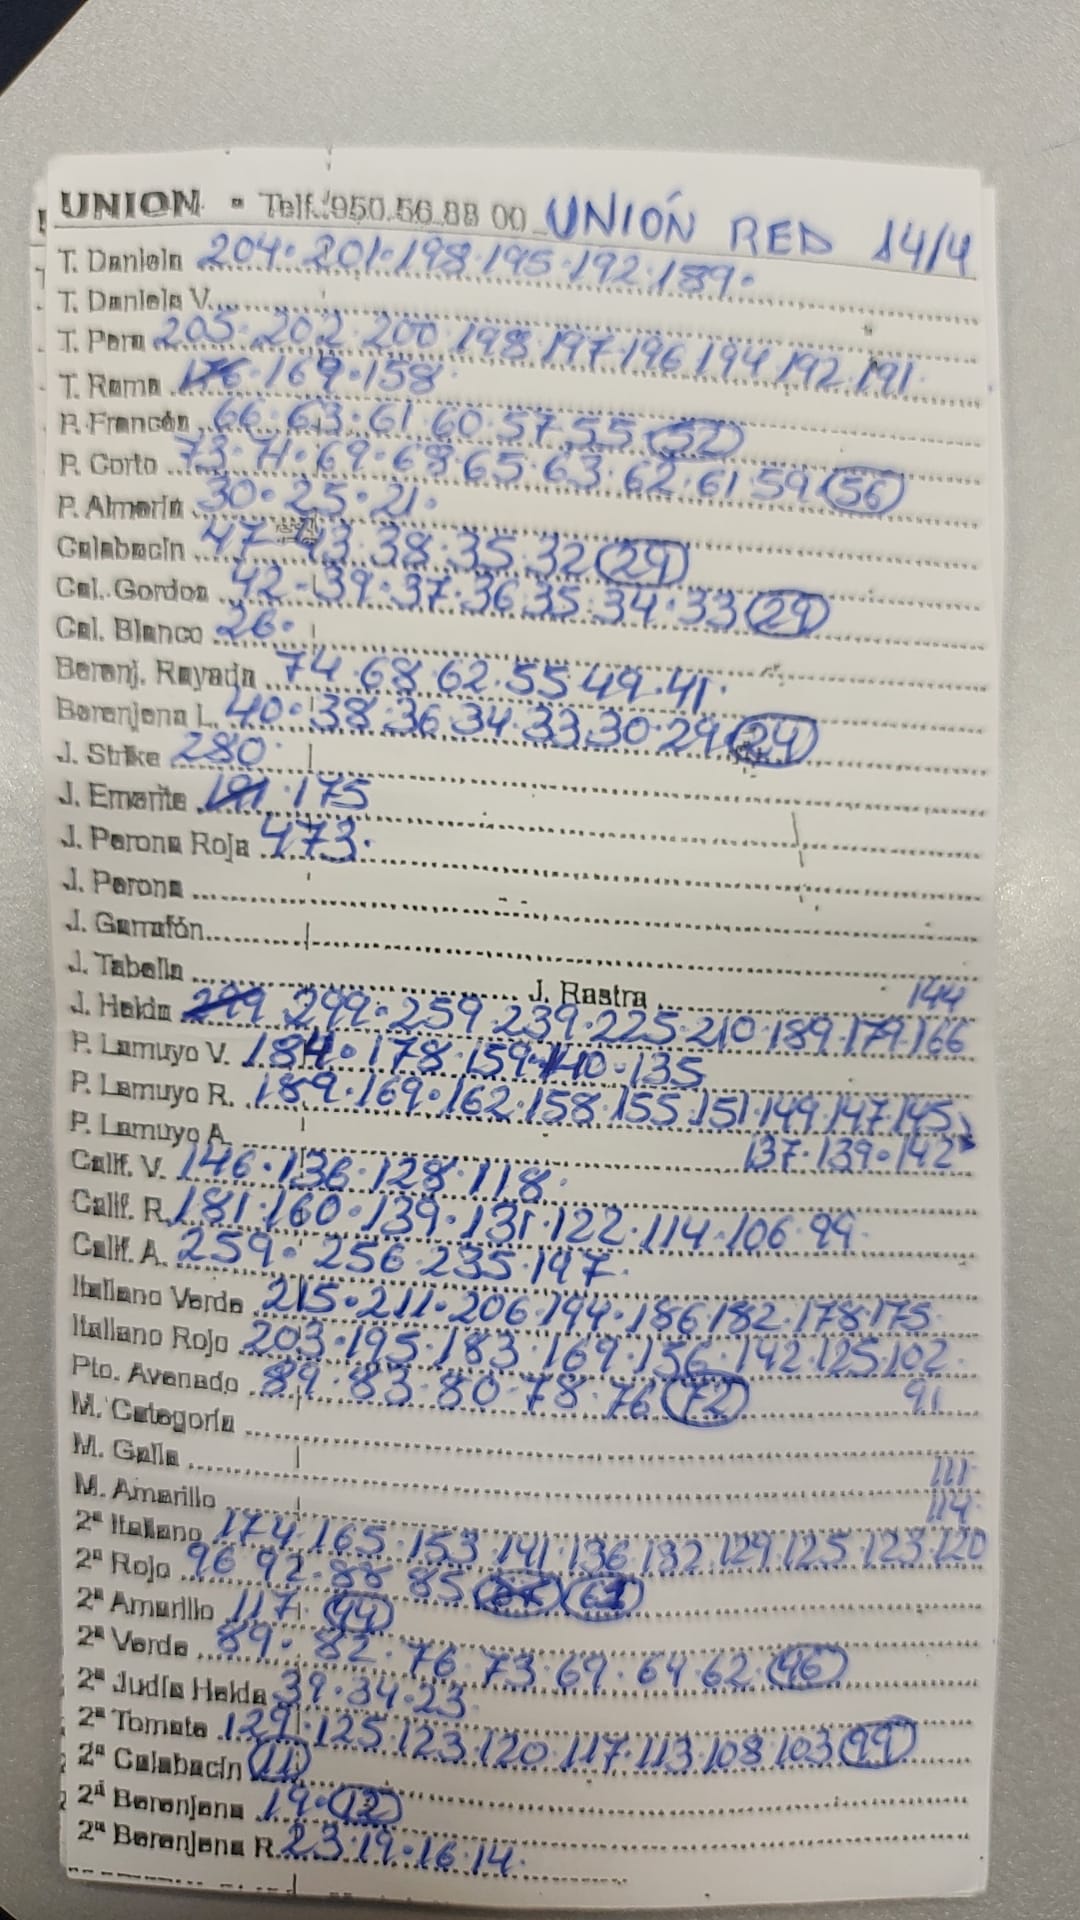 UNION - Telf.: 950.56.88 00 UNIÓN RED 14/4
T. Daniela 204·201·198·195·192·189·
T. Daniela V.
T. Pera 205·202·200·198·197·196 194 192·191·
T. Rama 176·169·158·
P. Francés 66·63·61·60·57·55 52
P. Corto 73·71·69·68·65·63·62·61·59 56
P. Almería 30·25·21·
Calabacín 47·43·38·35·32 29
Cal. Gordos 42·39·37·36·35·34·33 29
Cal. Blanco 26·
Berenj. Rayada 74·68·62·55·49·41·
Berenjena L. 40·38·36·34·33·30·29 24
J. Strike 280·
J. Emerite 191·175
J. Perona Roja 473·
J. Perona
J. Garrafón
J. Tabella J. Rastra 144
J. Helda 299 299·259·239·225·210·189·179·166
P. Lamuyo V. 184·178·159·140·135
P. Lamuyo R. 189·169·162·158·155·151·149·147·145
P. Lamuyo A. 137·139·142
Calif. V. 146·136·128·118·
Calif. R. 181·160·139·131·122·114·106·99·
Calif. A. 259·256·235·197·
Italiano Verde 215·211·206·194·186·182·178·175·
Italiano Rojo 203·195·183·169·156·142·125·102·
Pto. Avenado 89·83·80·78·76 72 91
M. Categoría
M. Galia 111·
M. Amarillo 114·
2ª Italiano 174·165·153·141·136·132·129·125·123·120
2ª Rojo 96 92·88·85 61
2ª Amarillo 117· 94
2ª Verde 89·82·76·73·69·64·62 46
2ª Judía Helda 39·34·23·
2ª Tomate 129·125·123·120·117·113·108·103 99
2ª Calabacín 11
2ª Berenjena 19· 12
2ª Berenjena R. 23·19·16·14·